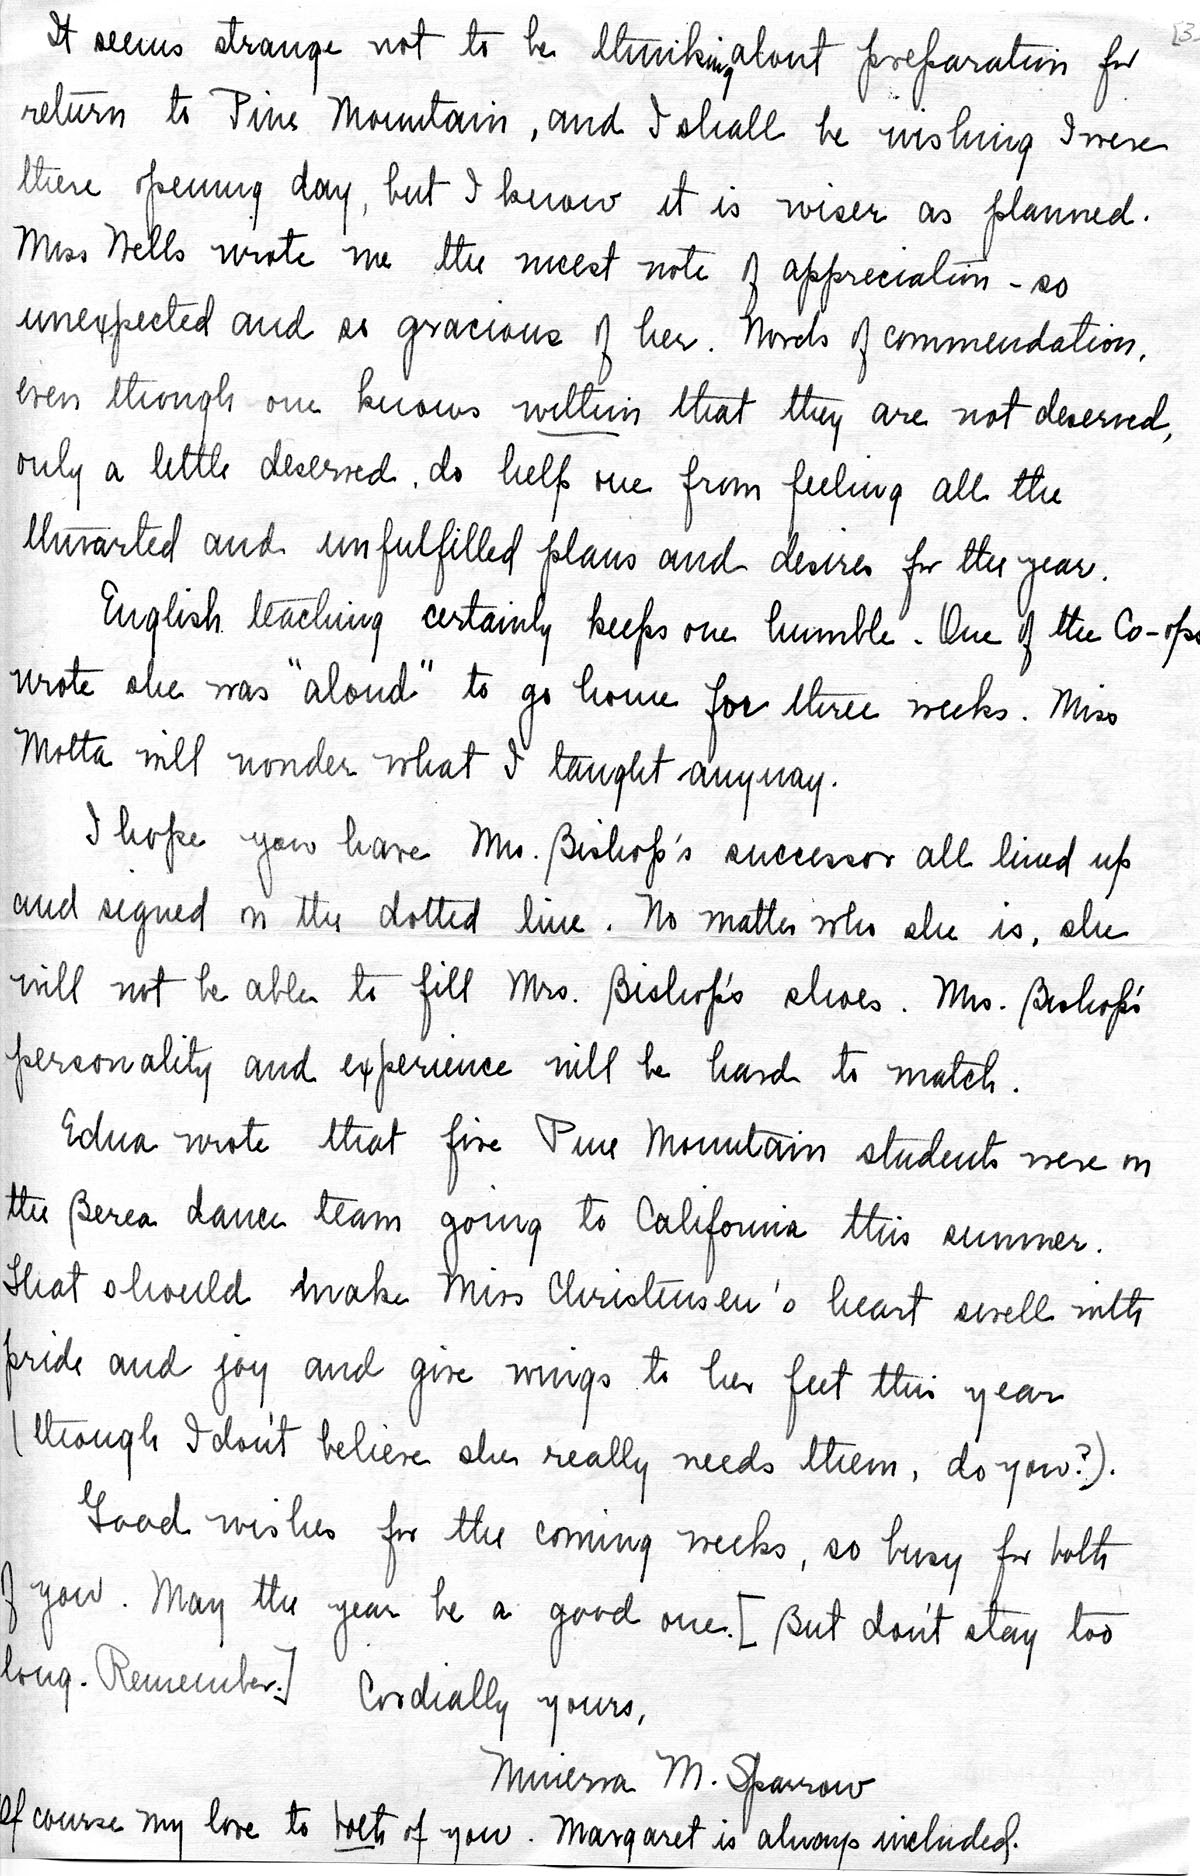 [3.
It seems strange not to be thinking about preparation for
return to Pine Mountain, and I shall be wishing I were
there opening day, but I know it is wiser as planned.
Miss Wells wrote me the nicest note of appreciation - so
unexpected and so gracious of her. Words of commendation,
even though one knows within that they are not deserved,
only a little deserved, do help one from feeling all the
thwarted and unfulfilled plans and desires for the year.
English teaching certainly keeps one humble. One of the Co-ops
wrote she was "aloud" to go home for three weeks. Miss
Motta will wonder what I taught anyway.
I hope you have Mrs. Bishop's successor all lined up
and signed on the dotted line. No matter who she is, she
will not be able to fill Mrs. Bishop's shoes. Mrs. Bishop's
personality and experience will be hard to match.
Edna wrote that five Pine Mountain students were on
the Berea dance team going to California this summer.
That should make Miss Christensen's heart swell with
pride and joy and give wings to her feet this year
(though I don't believe she really needs them, do you?).
Good wishes for the coming weeks, so busy for both
of you. May the year be a good one. [But don't stay too
long. Remember.]
Cordially yours,
Minerva M. Sparrow
Of course my love to both of you. Margaret is always included.